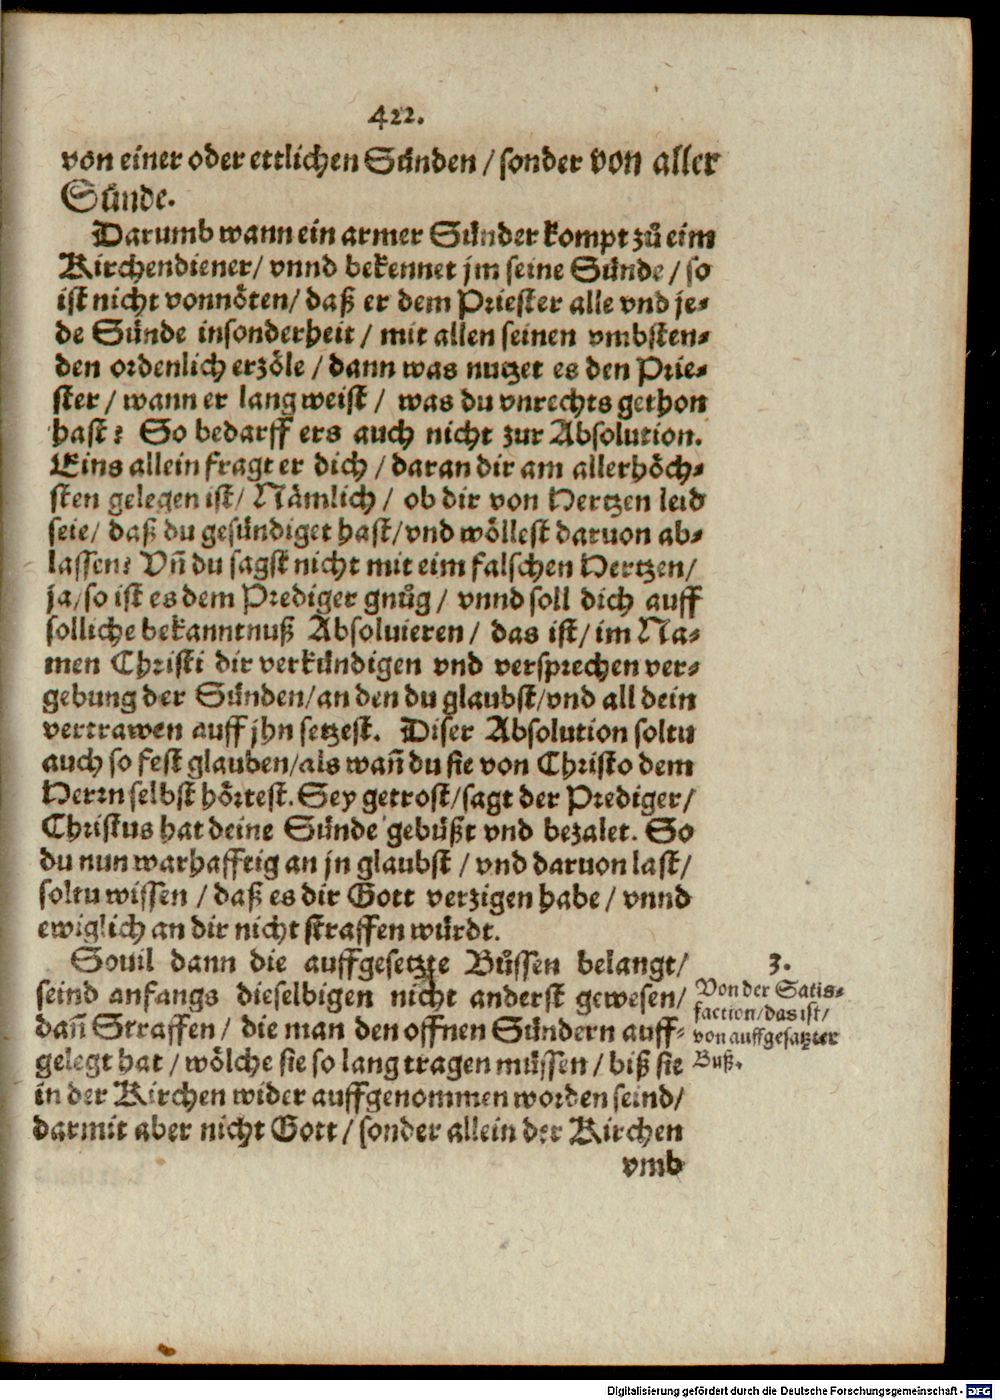 422.
von einer oder ettlichen Sünden / sonder von aller
Sünde.
Darumb wann ein armer Sünder kompt zů eim
Kirchendiener / vnnd bekennet jm seine Sünde / so
ist nicht vonnöten / daß er dem Priester alle vnd je⸗
de Sünde insonderheit / mit allen seinen vmbsten⸗
den ordenlich erzöle / dann was nutzet es den Prie⸗
ster / wann er lang weist / was du vnrechts gethon
hast? So bedarff ers auch nicht zur Absolution.
Eins allein fragt er dich / daran dir am allerhöch⸗
sten gelegen ist / Nämlich / ob dir von Hertzen leid
seie / daß du gesündiget hast / vnd wöllest daruon ab⸗
lassen? Vñ du sagst nicht mit eim falschen Hertzen /
ja / so ist es dem Prediger gnůg / vnnd soll dich auff
solliche bekanntnuß Absoluieren / das ist / im Na⸗
men Christi dir verkündigen vnd versprechen ver⸗
gebung der Sünden / an den du glaubst / vnd all dein
vertrawen auff jhn setzest. Diser Absolution soltu
auch so fest glauben / als wañ du sie von Christo dem
Herrn selbst hörtest. Sey getrost / sagt der Prediger /
Christus hat deine Sünde gebüßt vnd bezalet. So
du nun warhafftig an jn glaubst / vnd daruon last /
soltu wissen / daß es dir Gott verzigen habe / vnnd
ewiglich an dir nicht straffen würdt.
Souil dann die auffgesetzte Bůssen belangt /
seind anfangs dieselbigen nicht anderst gewesen /
dañ Straffen / die man den offnen Sündern auff⸗
gelegt hat / wölche sie so lang tragen müssen / biß sie
in der Kirchen wider auffgenommen worden seind /
darmit aber nicht Gott / sonder allein der Kirchen
vmb
3.
Von der Satis⸗
faction / das ist /
von auffgesatzter
Buß.
Digitalisierung gefördert durch die Deutsche Forschungsgemeinschaft - DFG